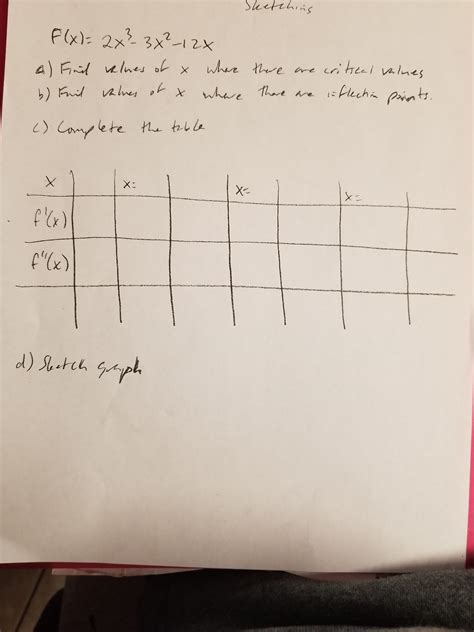 Sketching
F(x)= 2x³-3x²-12x
a) Find values of x where there are critical values
b) Find values of x where there are inflection points.
c) Complete the table
x x= x= x=
f'(x)
f''(x)
d) Sketch graph